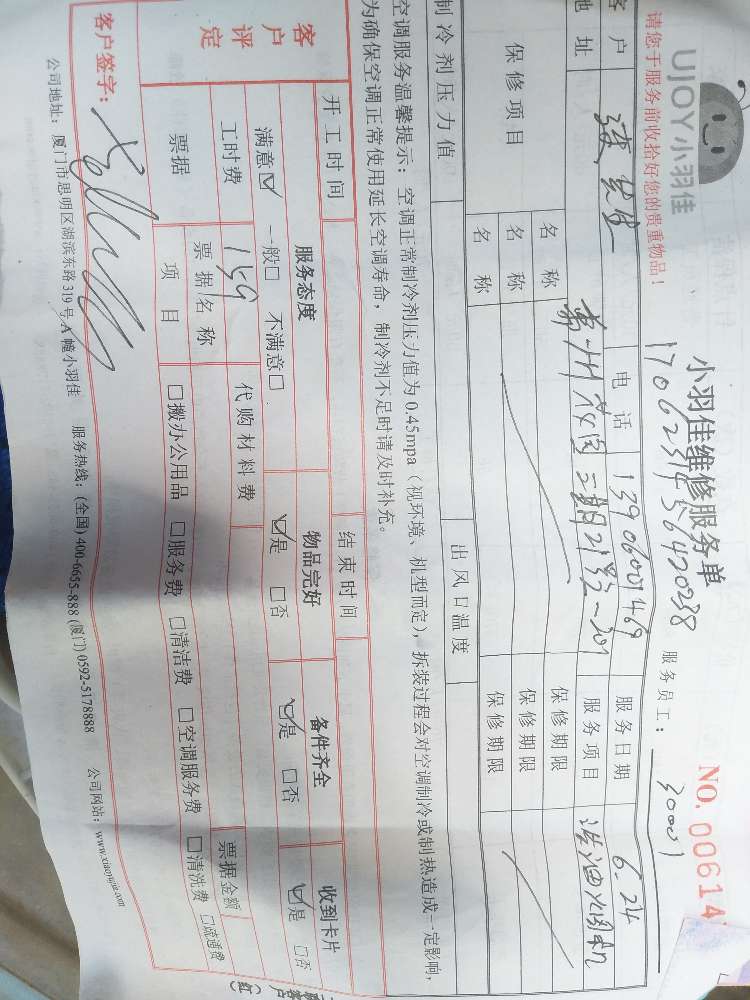 UJOY小羽佳
小羽佳维修服务单
NO. 00614
170623156420238
服务员工： 30001
请您于服务前收拾好您的贵重物品！
客户 电话 服务日期 6.24
地址 二期21号 服务项目 洗油烟机
保修项目 名称 保修期限
名称 保修期限
名称 保修期限
制冷剂压力值 出风口温度
空调服务温馨提示：空调正常制冷剂压力值为0.45mpa（视环境、机型而定），拆装过程会对空调制冷或制热造成一定影响，
为确保空调正常使用延长空调寿命，制冷剂不足时请及时补充。
开工时间 结束时间
客户评定 服务态度 物品完好 备件齐全 收到卡片
满意☑ 一般□ 不满意□ ☑是 □否 ☑是 □否 ☑是 □否
工时费 159 代购材料费
票据 票据名称 票据金额
项目 □搬办公用品 □服务费 □清洁费 □空调服务费 □清洗费 □疏通费
客户签字：
公司地址：厦门市思明区湖滨东路319号A幢小羽佳 服务热线：(全国) 400-6655-888 (厦门) 0592-5178888 公司网站：www.xiaoyujia.com